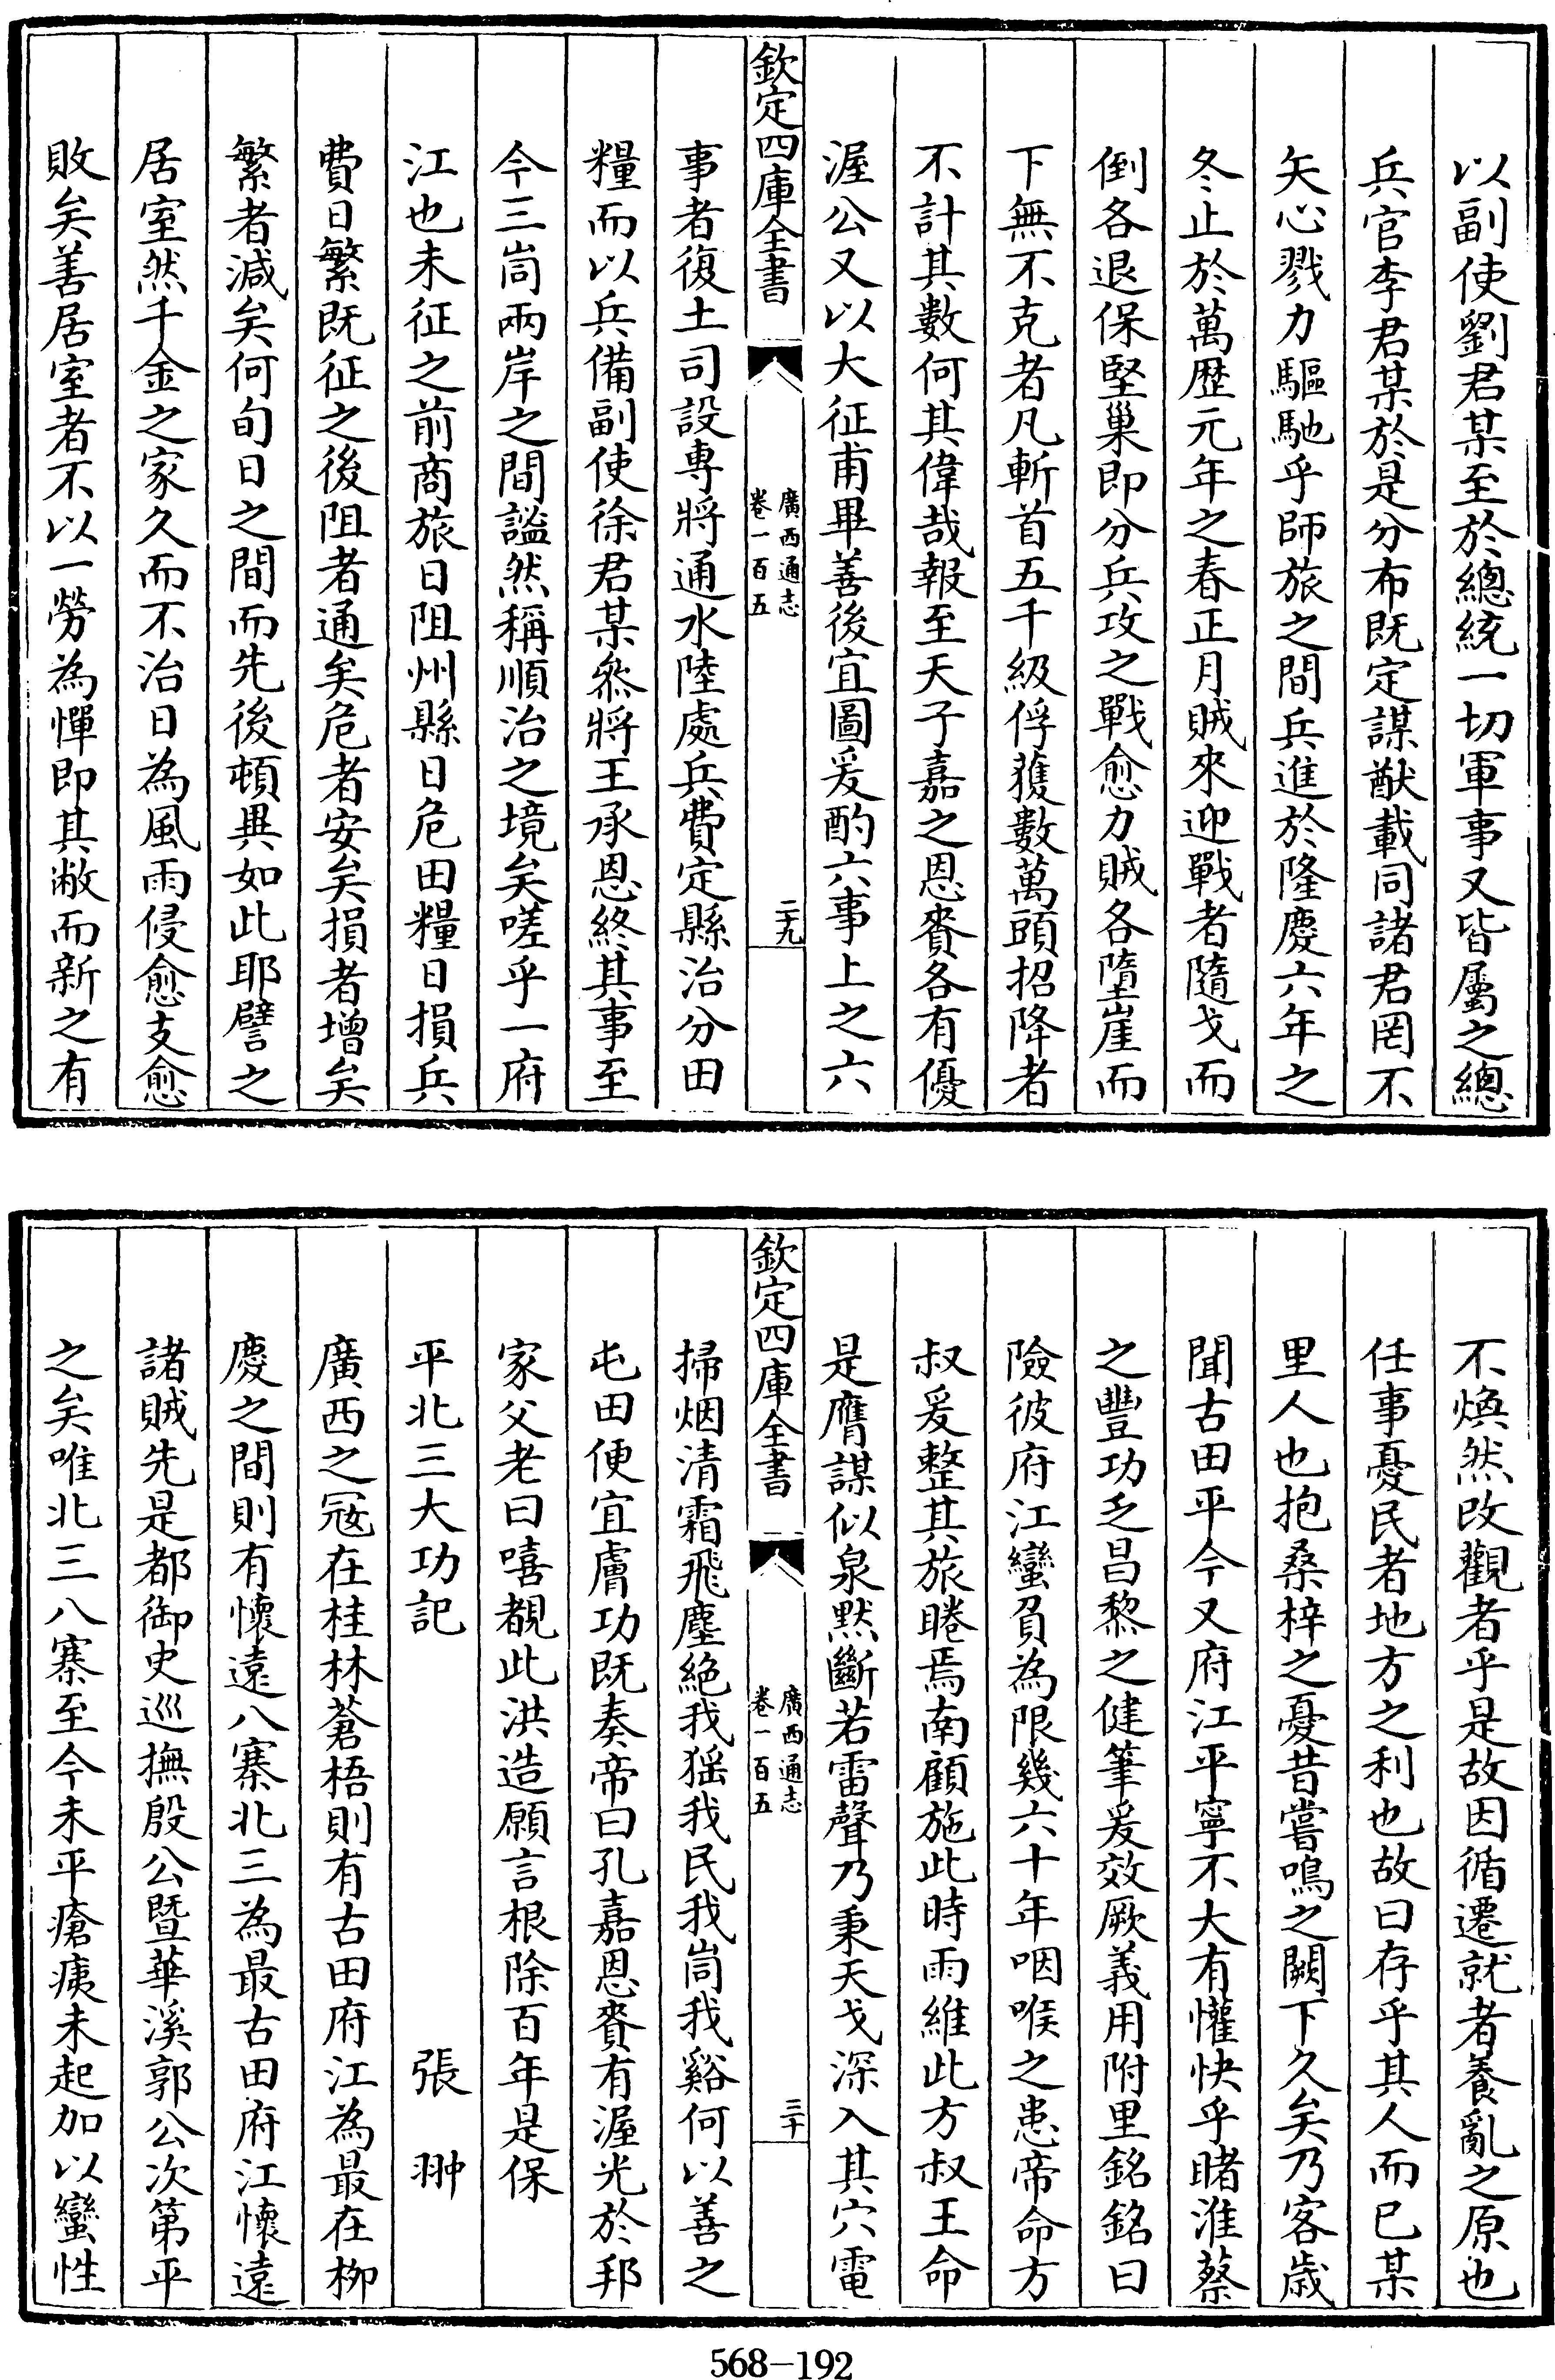 以副使劉君某至於總統一切軍事又皆屬之總
兵官李君某於是分布既定謀猷載同諸君罔不
矢心戮力驅馳乎師旅之間兵進於隆慶六年之
冬止於萬歴元年之春正月賊來迎戰者隨戈而
倒各退保堅巢即分兵攻之戰愈力賊各墮崖而
下無不克者凡斬首五千級俘獲數萬頭招降者
不計其數何其偉哉報至天子嘉之恩賚各有優
渥公又以大征甫畢善後宜圖爰酌六事上之六
欽定四庫全書
廣西通志
卷一百五
二十九
事者復土司設專將通水陸處兵費定縣治分田
糧而以兵備副使徐君某叅將王承恩終其事至
今三峝兩岸之間謐然稱順治之境矣嗟乎一府
江也未征之前商旅日阻州縣日危田糧日損兵
費日繁既征之後阻者通矣危者安矣損者增矣
繁者減矣何旬日之間而先後頓異如此耶譬之
居室然千金之家久而不治日為風雨侵愈支愈
敗矣善居室者不以一勞為憚即其敝而新之有
不煥然改觀者乎是故因循遷就者養亂之原也
任事憂民者地方之利也故曰存乎其人而已某
里人也抱桑梓之憂昔嘗鳴之闕下久矣乃客歲
聞古田平今又府江平寧不大有懽快乎睹淮蔡
之豐功乏昌黎之健筆爰效厥義用附里銘銘曰
險彼府江蠻負為限幾六十年咽喉之患帝命方
叔爰整其旅睠焉南顧施此時雨維此方叔王命
是膺謀似泉默斷若雷聲乃秉天戈深入其穴電
欽定四庫全書
廣西通志
卷一百五
三十
掃烟清霜飛塵絕我猺我民我峝我谿何以善之
屯田便宜膚功既奏帝曰孔嘉恩賚有渥光於邦
家父老曰嘻覩此洪造願言根除百年是保
平北三大功記 張翀
廣西之冦在桂林蒼梧則有古田府江為最在柳
慶之間則有懷遠八寨北三為最古田府江懷遠
諸賊先是都御史巡撫殷公暨華溪郭公次第平
之矣唯北三八寨至今未平瘡痍未起加以蠻性
568-192